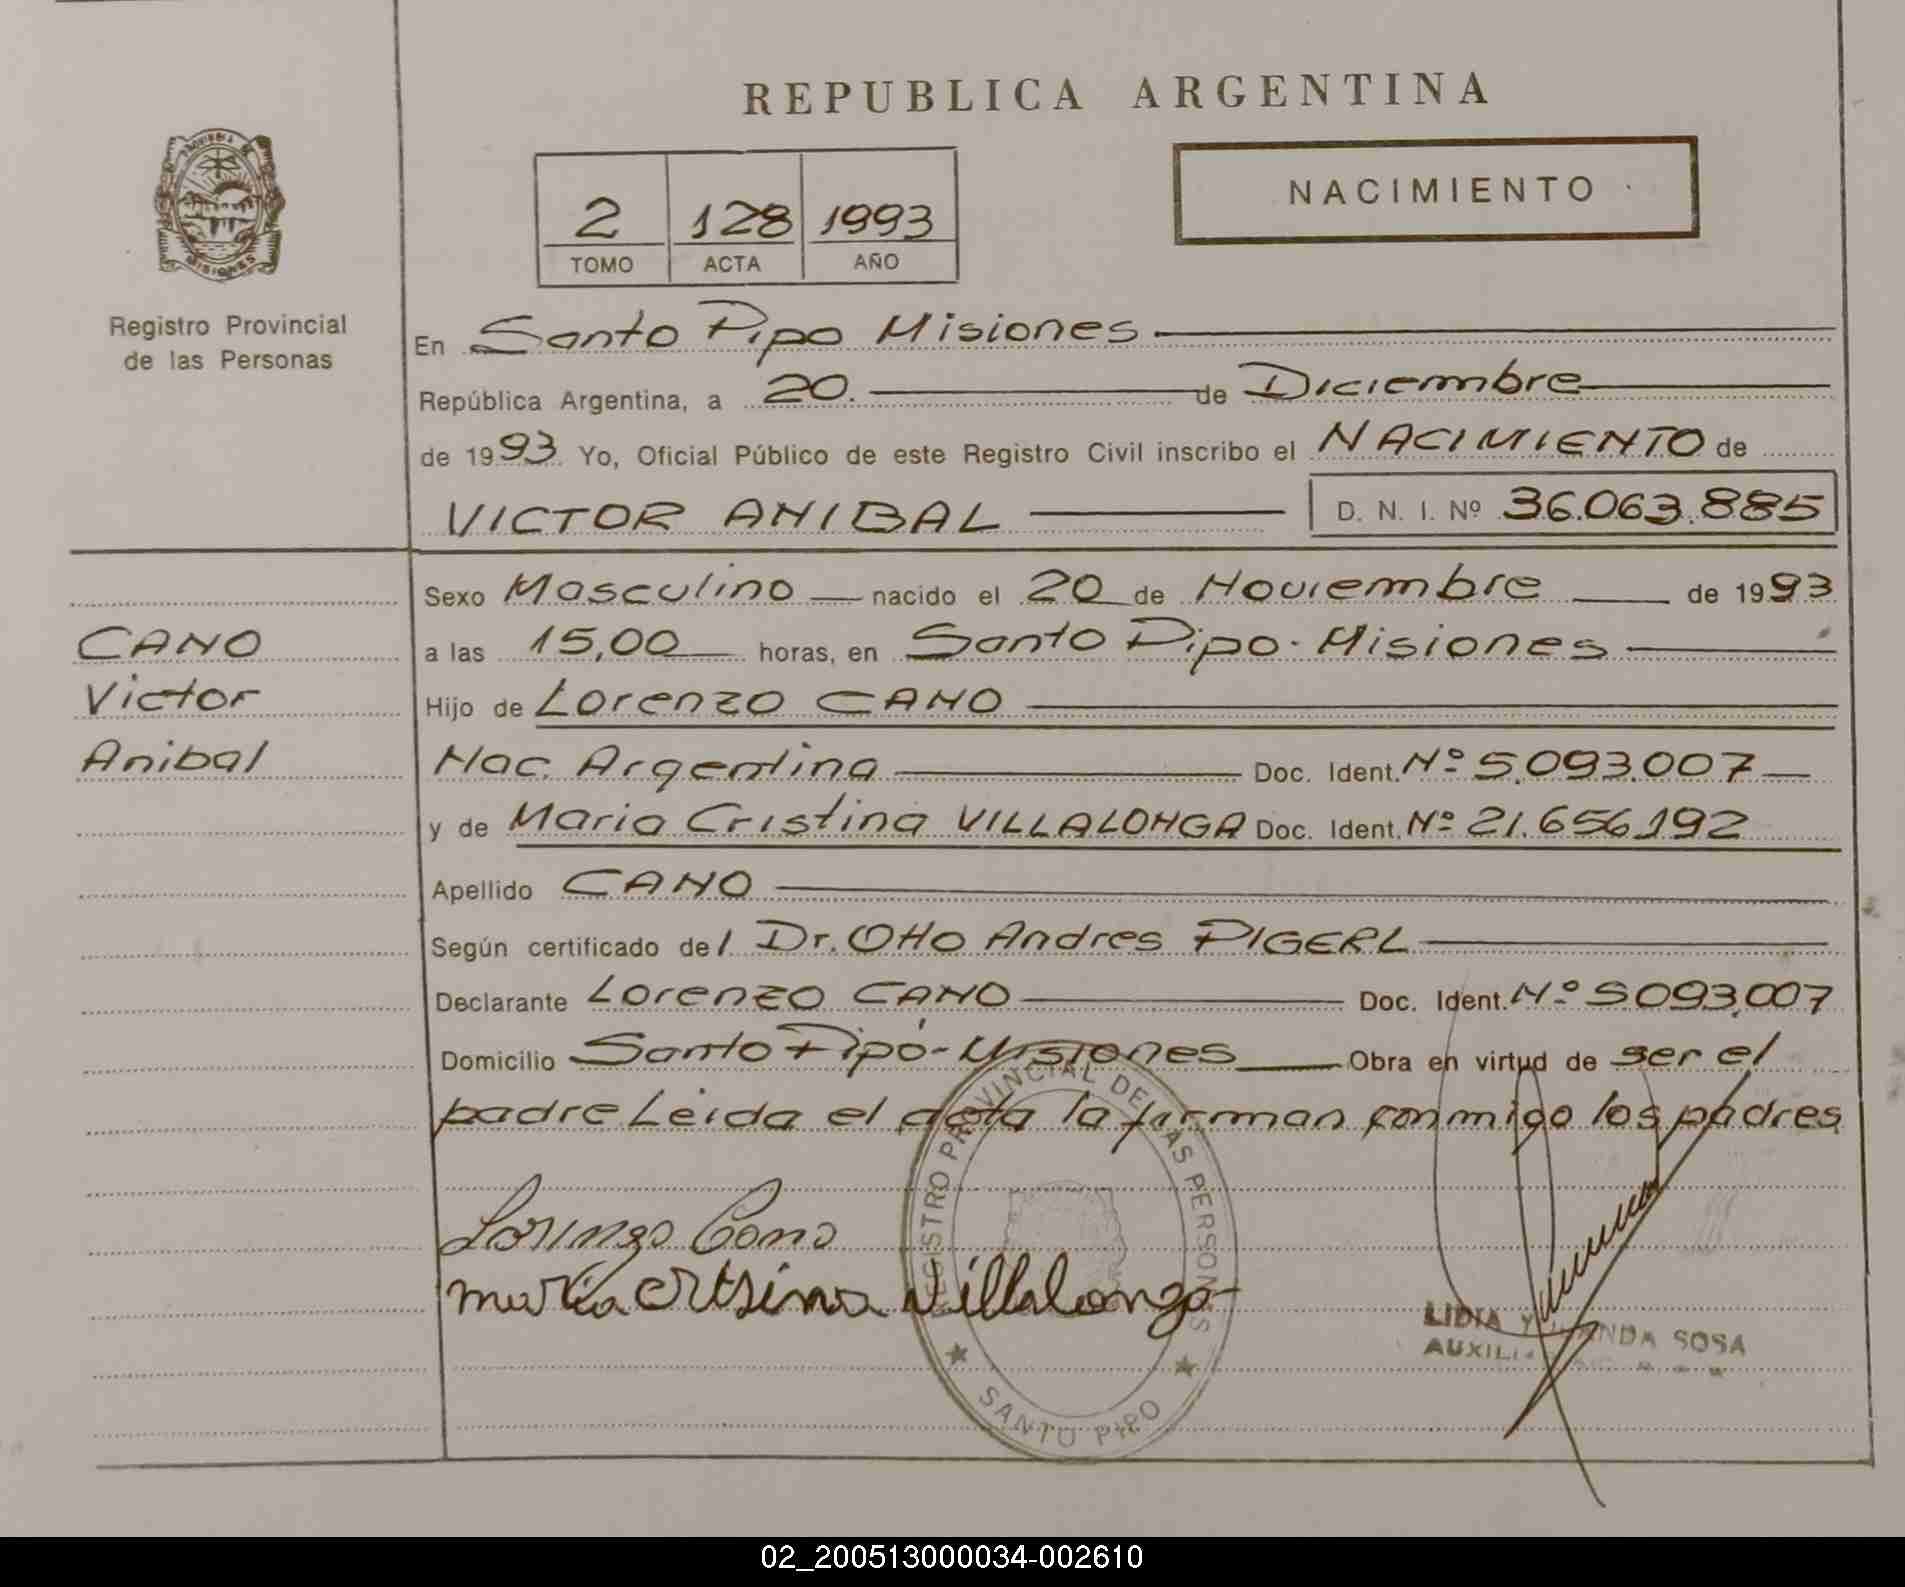 REPUBLICA ARGENTINA
PROVINCIA DE
MISIONES
Registro Provincial
de las Personas
2 128 1993
TOMO ACTA AÑO
NACIMIENTO
En Santo Pipo Misiones
República Argentina, a 20. de Diciembre
de 1993 Yo, Oficial Público de este Registro Civil inscribo el NACIMIENTO de
VICTOR ANIBAL D. N. I. Nº 36.063.885
Sexo Masculino nacido el 20 de Noviembre de 1993
CANO
a las 15,00 horas, en Santo Pipo - Misiones
Victor
Hijo de Lorenzo CANO
Anibal
Nac. Argentina Doc. Ident. Nº 5.093.007
y de Maria Cristina VILLALONGA Doc. Ident. Nº 21.656.192
Apellido CANO
Según certificado del Dr. Otto Andres PIGERL
Declarante Lorenzo CANO Doc. Ident. Nº 5093.007
Domicilio Santo Pipó - Misiones Obra en virtud de ser el
padre Leida el acta la firman conmigo los padres
Lorenzo Cano
maria crtsina villalonga
REGISTRO PROVINCIAL DE LAS PERSONAS
SANTO PIPO
LIDIA YOLANDA SOSA
02_200513000034-002610